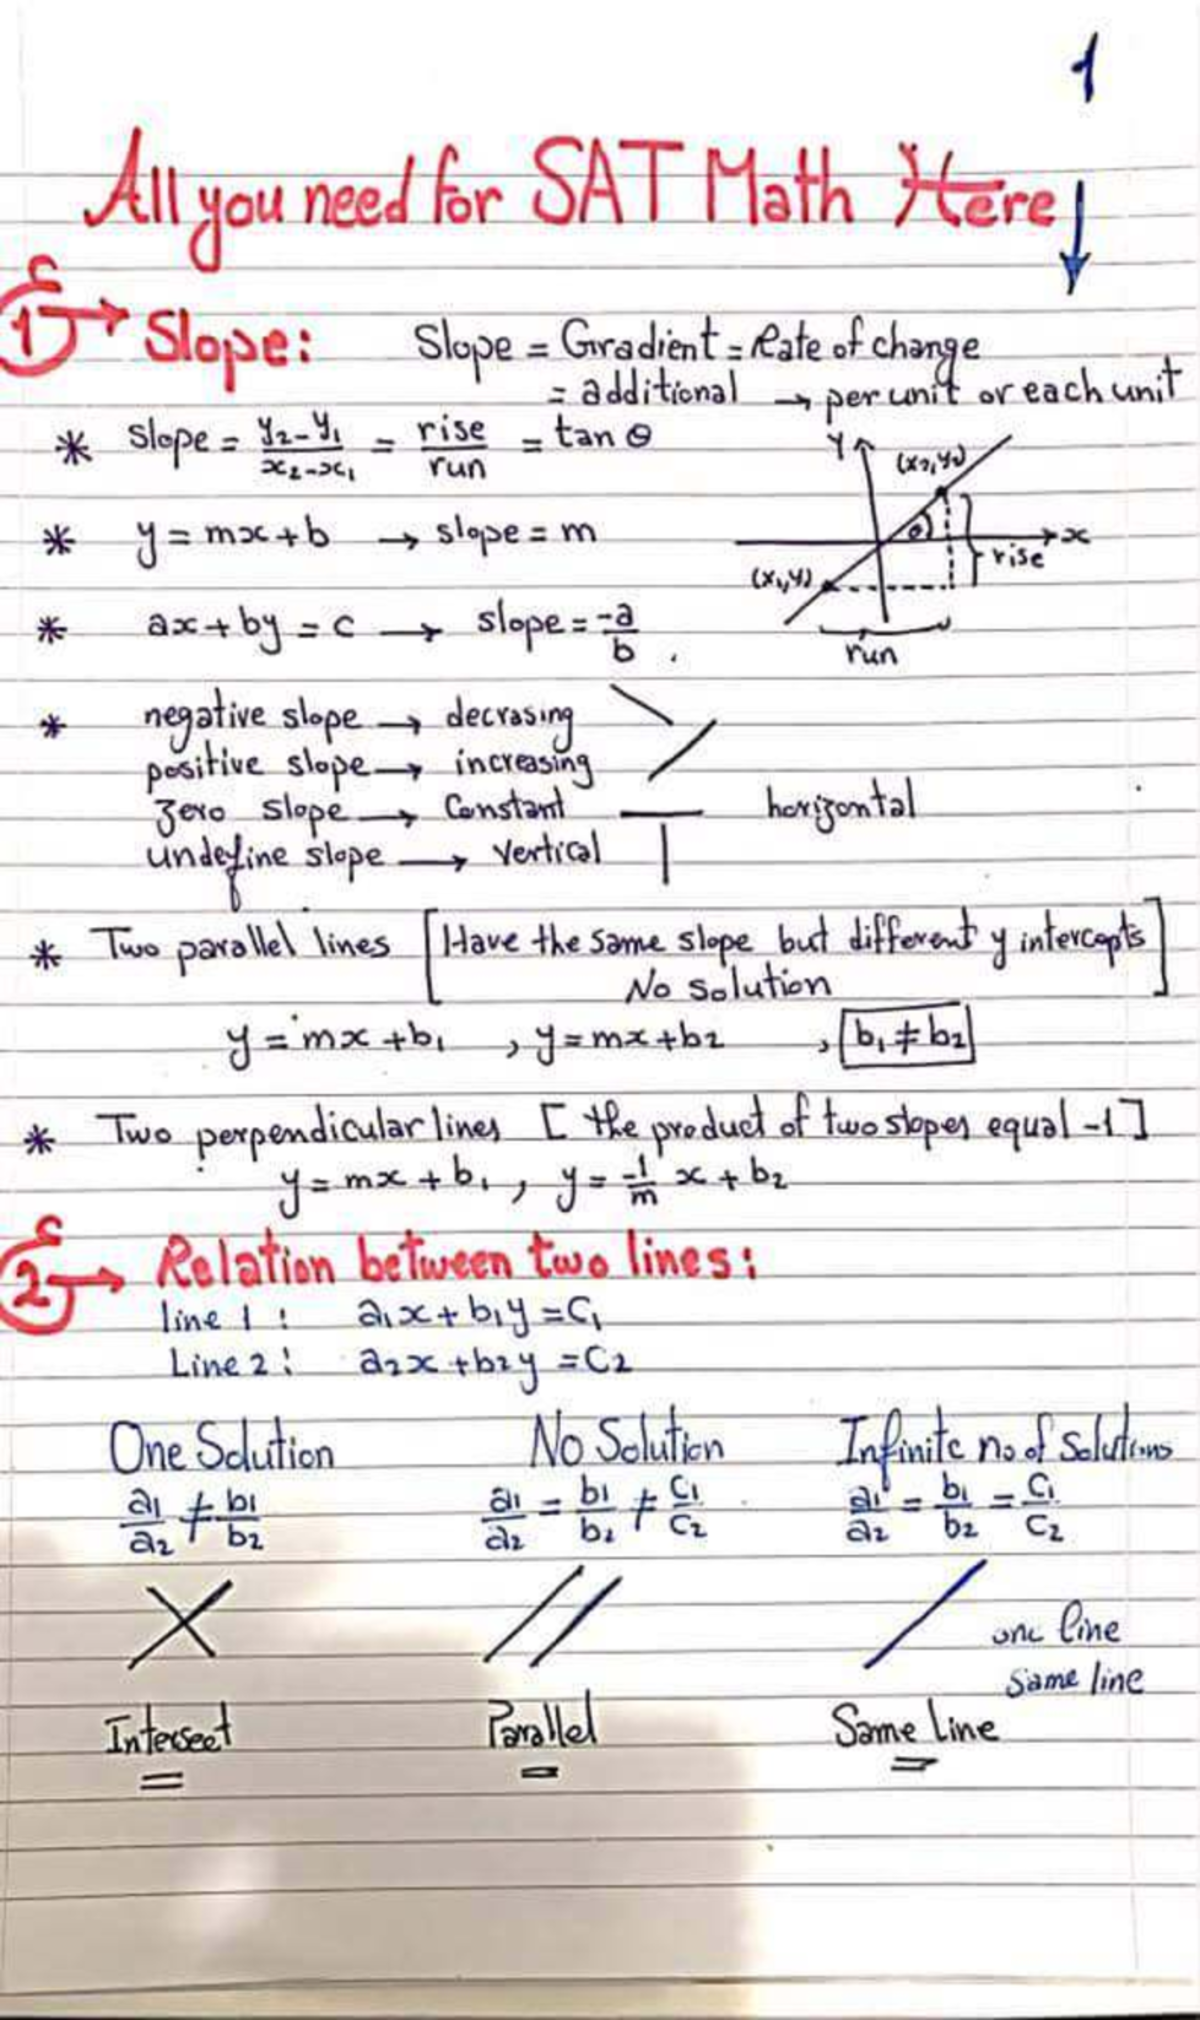 1
All you need for SAT Math Here ↓
1 → Slope: Slope = Gradient = Rate of change
= additional → per unit or each unit
* slope = (y₂-y₁)/(x₂-x₁) = rise/run = tan θ
Y
(x₂,y₂)
θ
x
rise
(x₁,y₁)
run
* y = mx + b → slope = m
* ax + by = c → slope = -a/b .
* negative slope → decrasing
positive slope → increasing
zero slope → Constant — horizontal
undefine slope → vertical |
* Two parallel lines [Have the same slope but different y intercepts
No solution]
y = mx + b₁ , y = mx + b₂ , b₁ ≠ b₂
* Two perpendicular lines [ the product of two slopes equal -1 ]
y = mx + b₁ , y = -1/m x + b₂
2 → Relation between two lines:
line 1 : a₁x + b₁y = C₁
Line 2 : a₂x + b₂y = C₂
One Solution No Solution Infinite no. of Solutions
a₁/a₂ ≠ b₁/b₂ a₁/a₂ = b₁/b₂ ≠ C₁/C₂ a₁/a₂ = b₁/b₂ = C₁/C₂
one line
same line
Intersect Parallel Same line